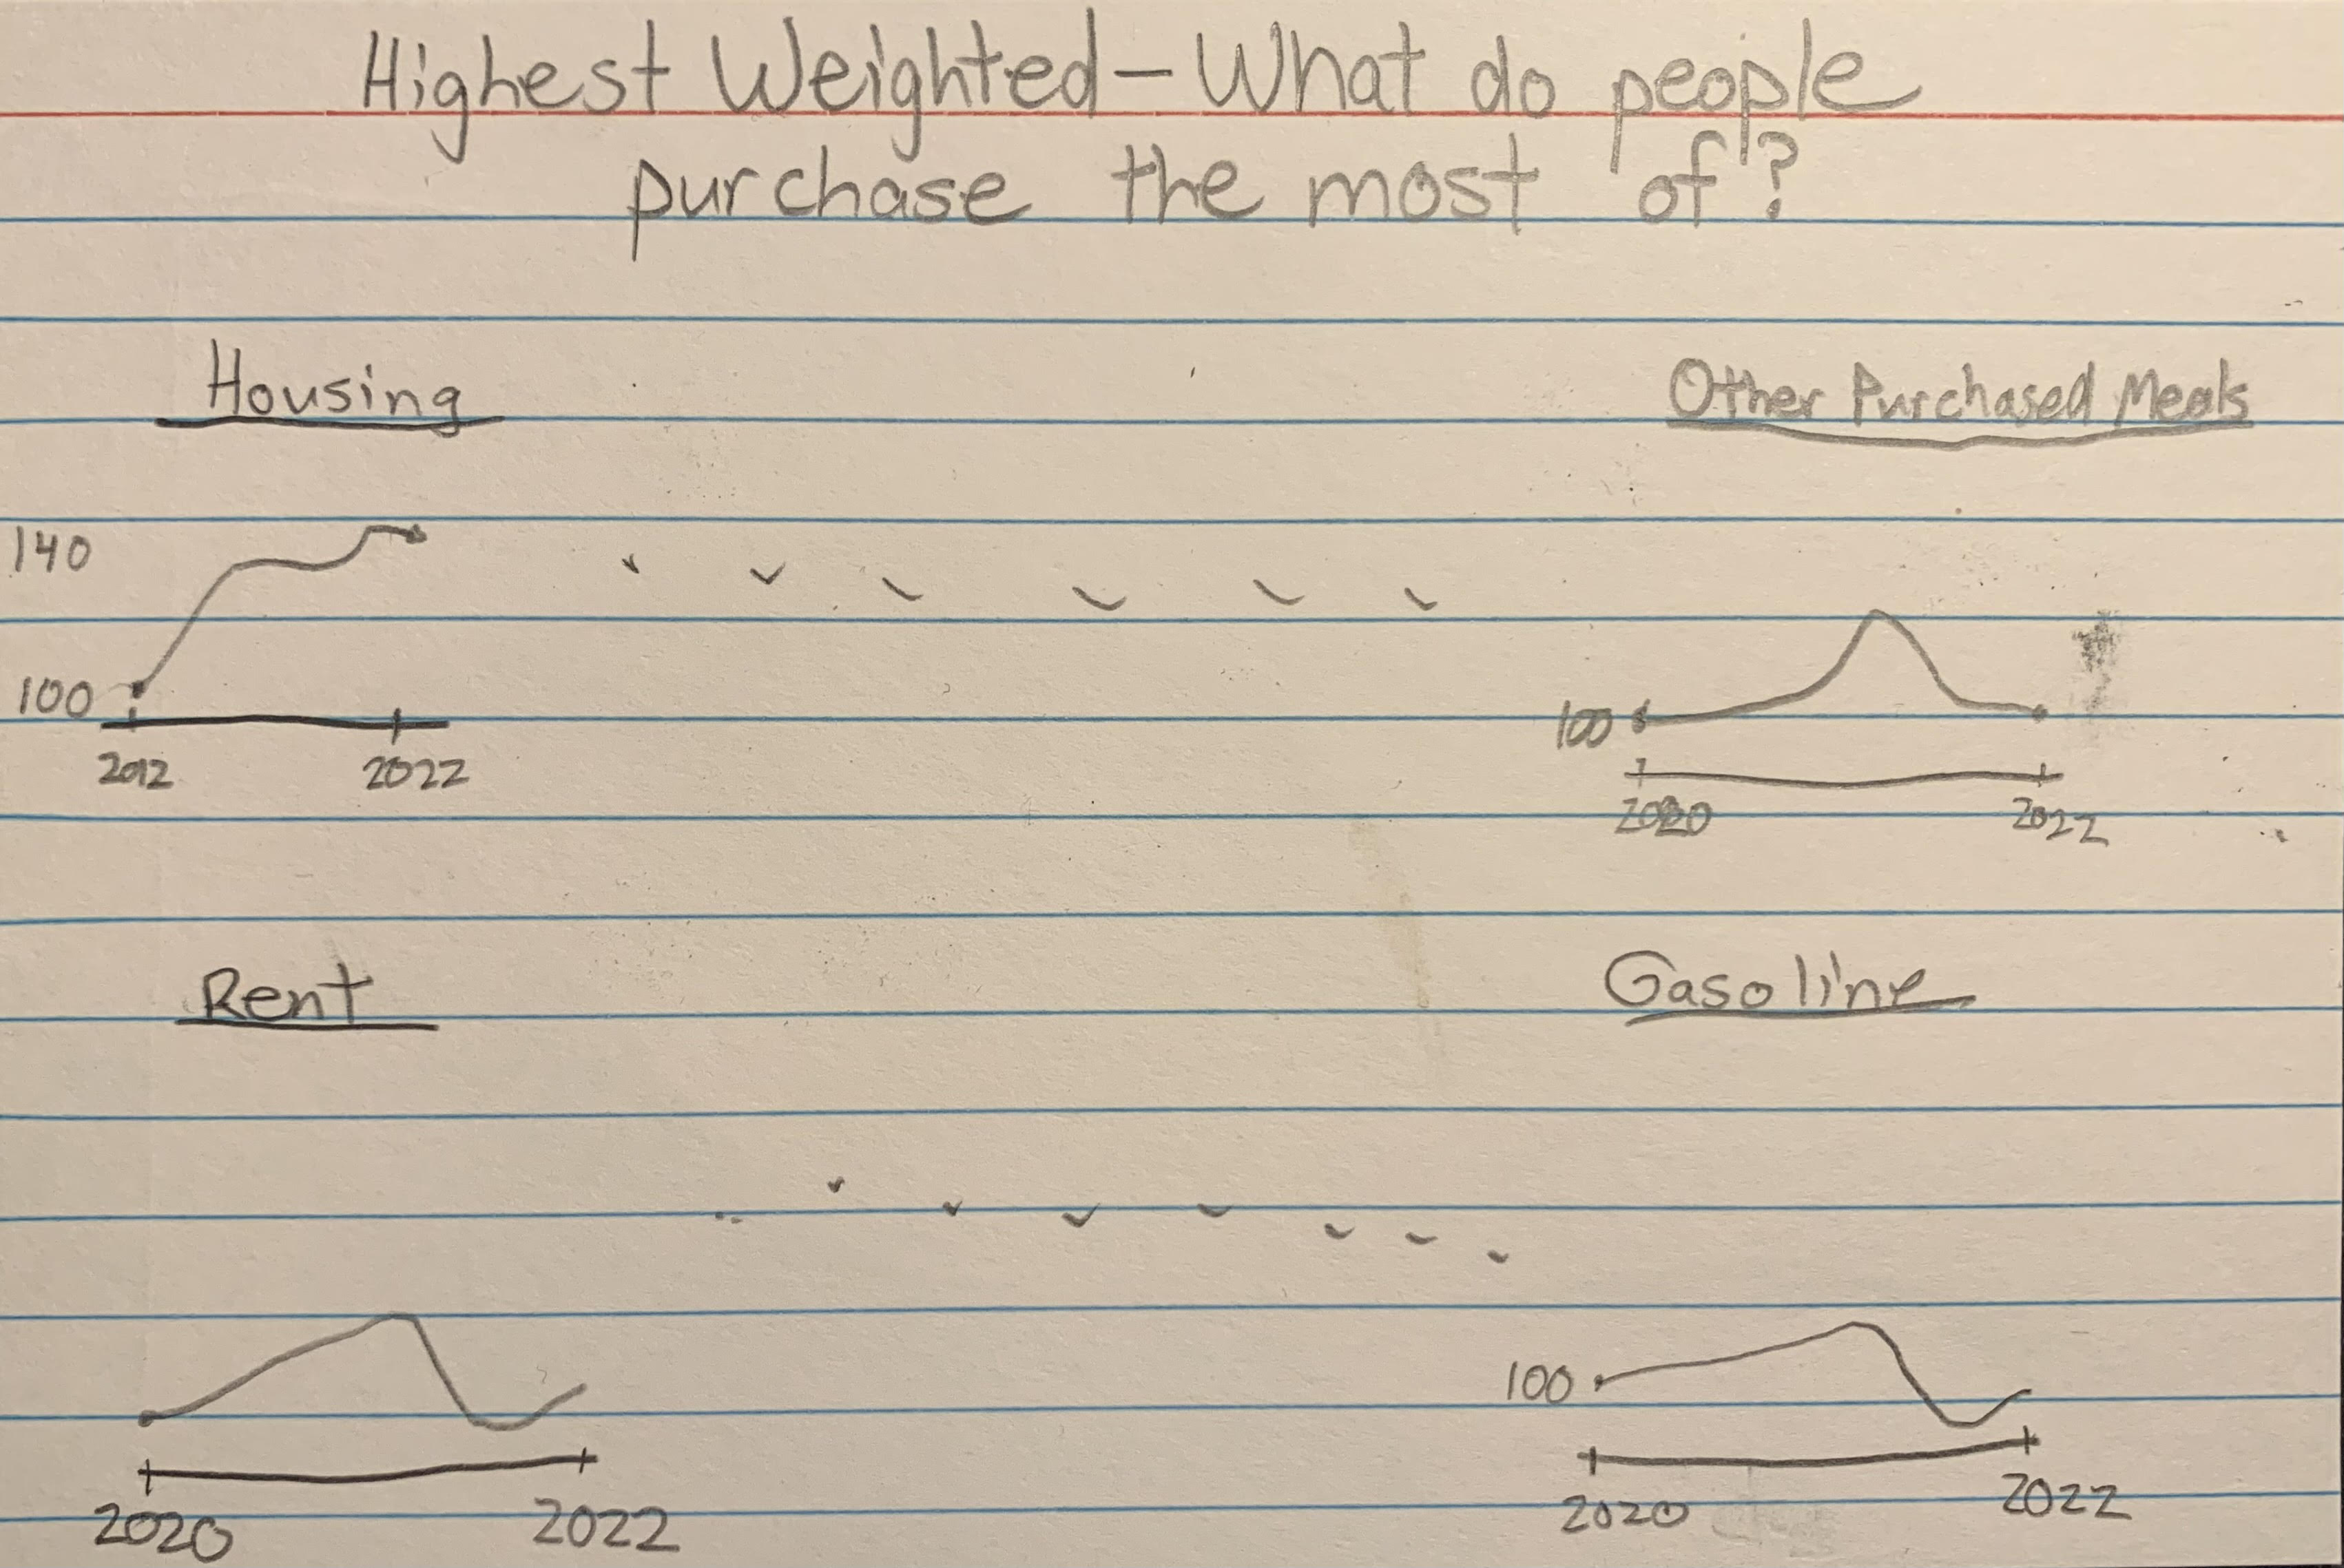 Highest Weighted - What do people
purchase the most of?
Housing
140
100
2012
2022
Other Purchased Meals
100
2020
2022
Rent
2020
2022
Gasoline
100
2020
2022